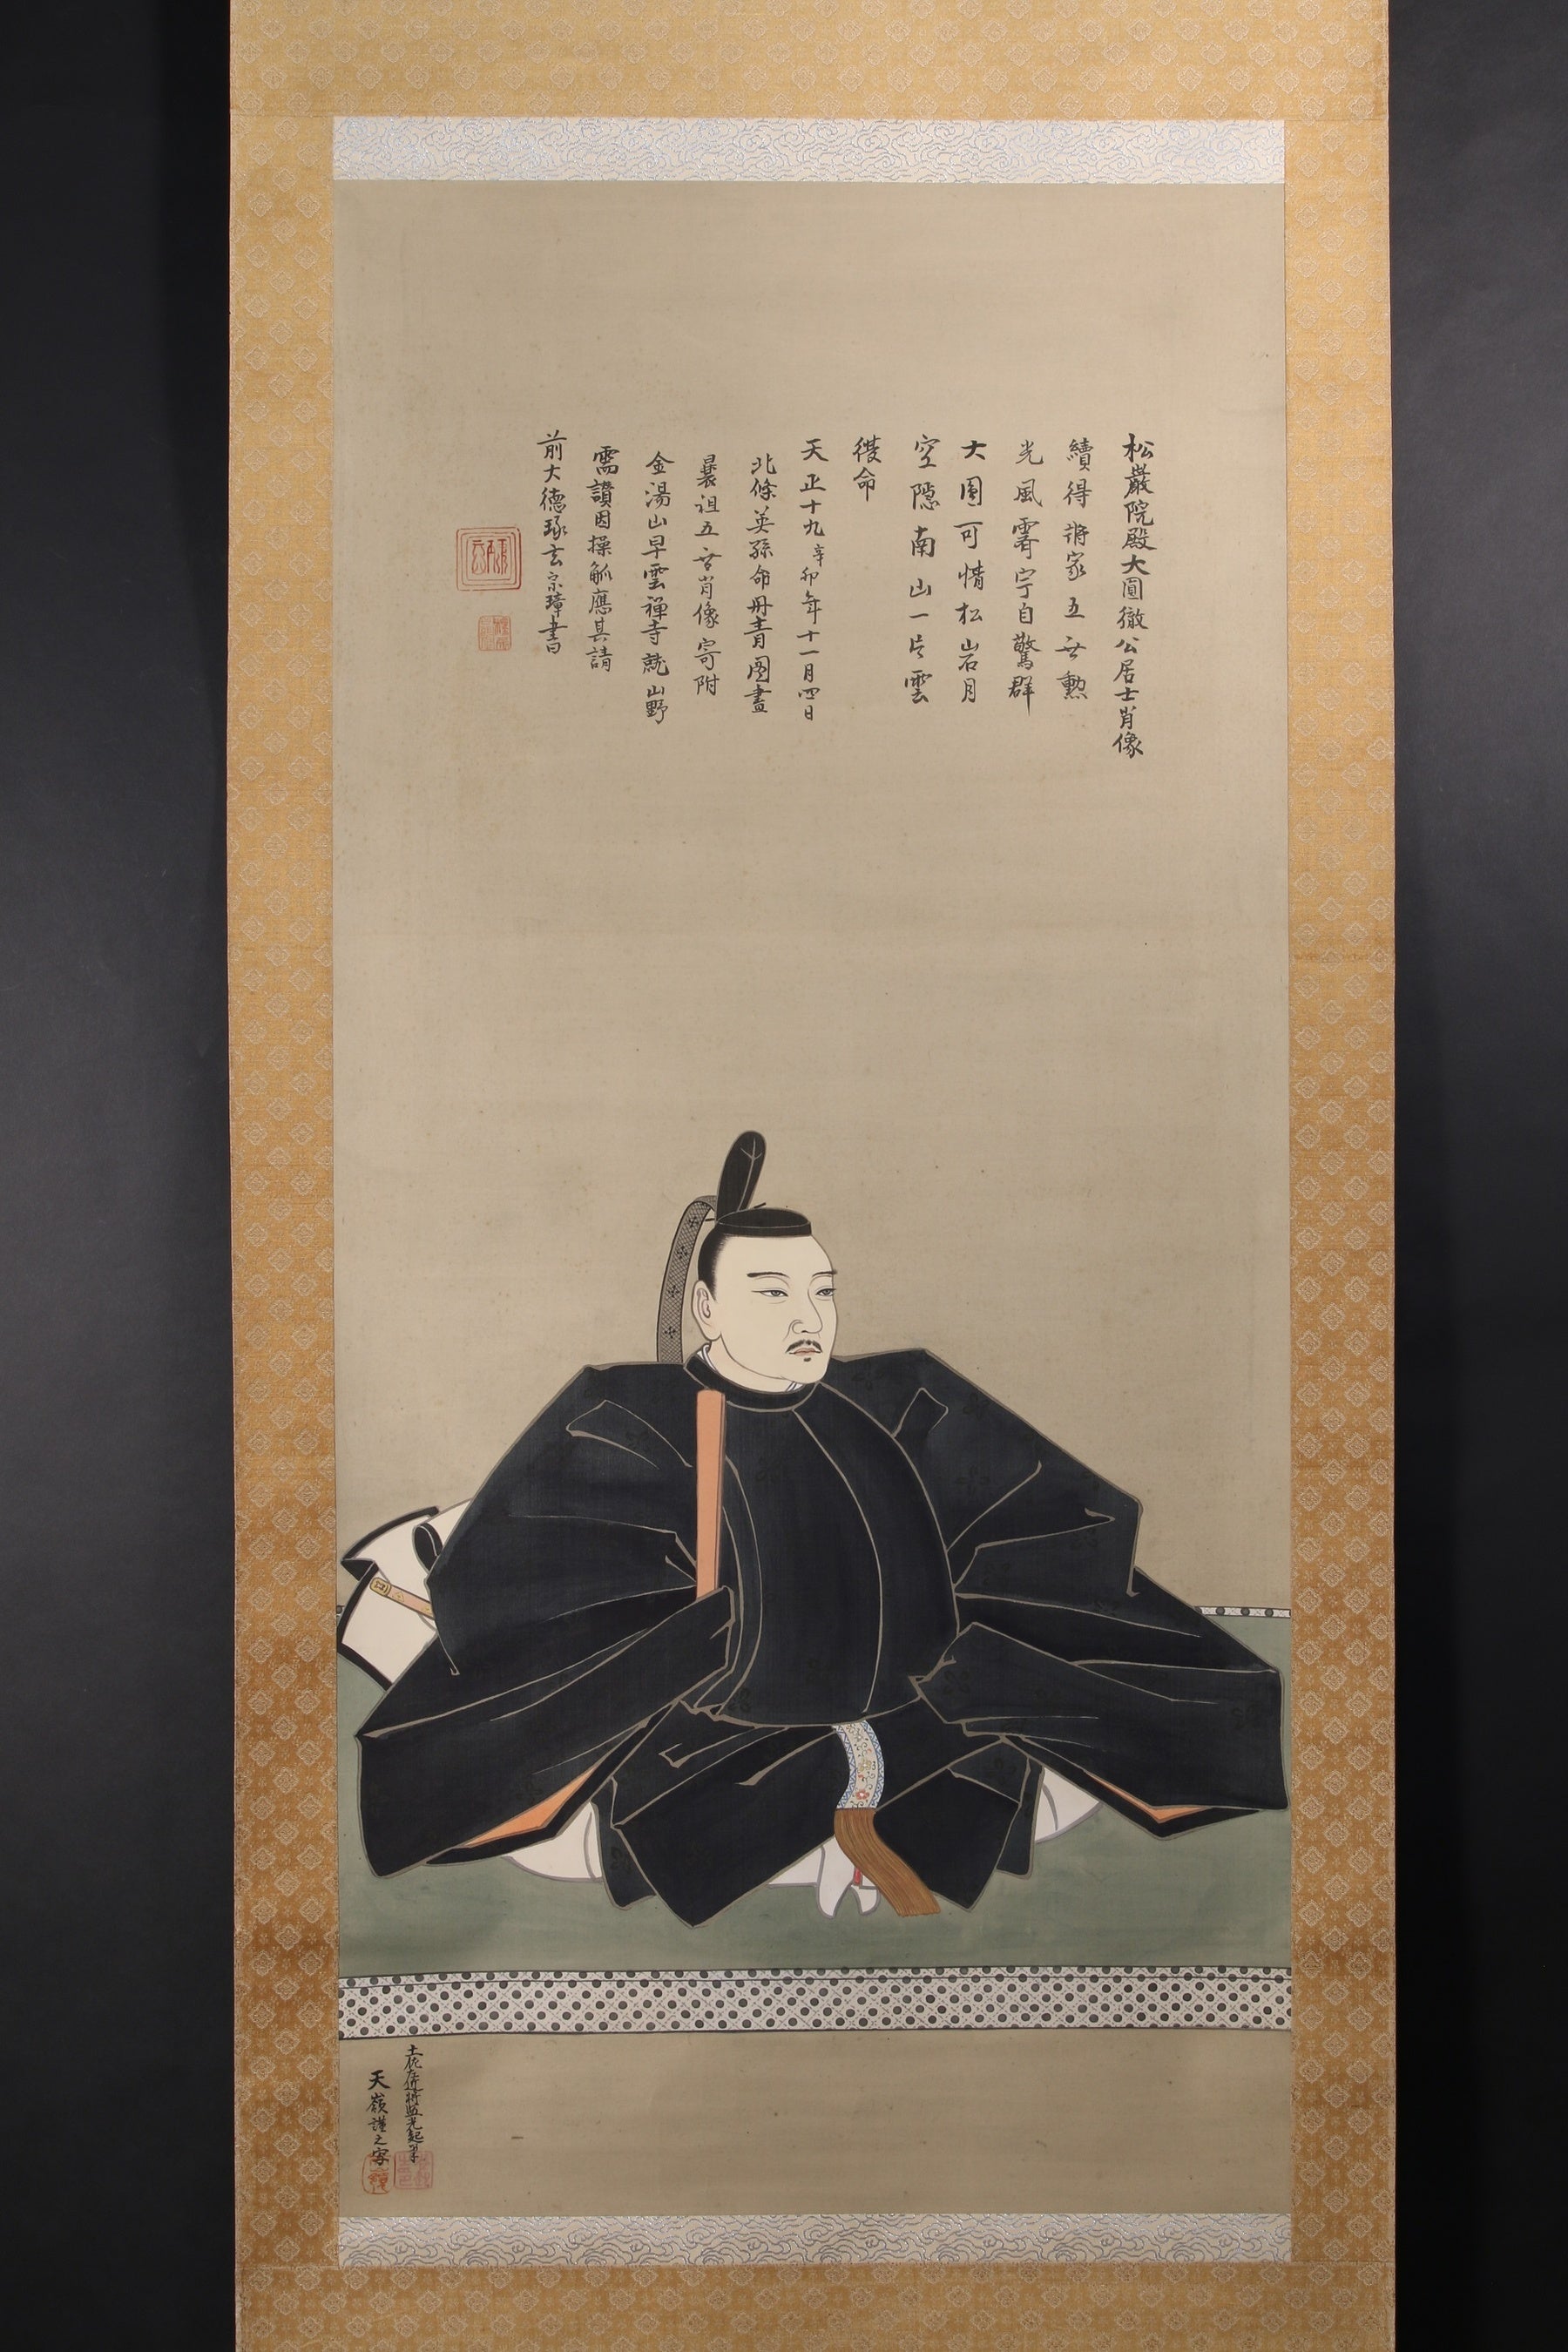 松巖院殿大圓徹公居士肖像
續得將家五世勲
光風霽宇自驚群
大圓可惜松岩月
空隠南山一片雲
後命
天正十九辛卯年十一月四日
北條英孫命丹青圖畫
曩祖五世肖像寄附
金湯山早雲禅寺就山野
需讃因操觚應其請
前大徳琢玄宗璋書
土佐左近将監光起筆
天嶺謹之寫